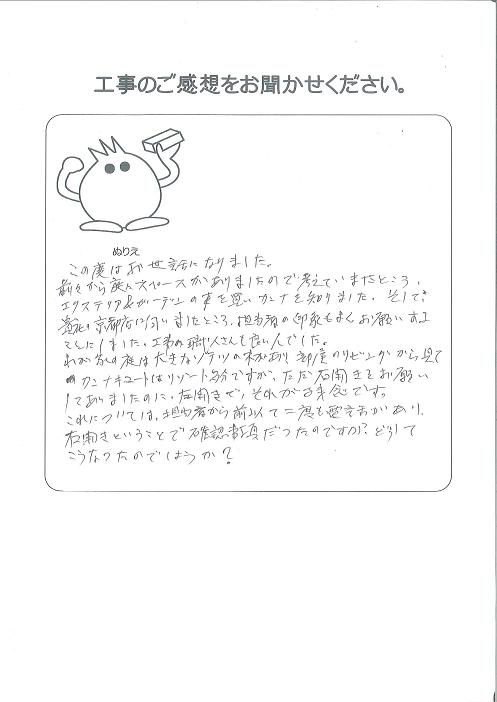 工事のご感想をお聞かせください。
ぬりえ
この度はお世話になりました。
前々から庭にスペースがありましたので考えていましたところ、
エクステリア&ガーデンの事を思いカンナを知りました。そして
京都店に伺いましたところ、担当者の印象もよくお願いする
ことにしました。工事の職人さんも良い人でした。
わが家の庭は大きなソテツの木があり部屋のリビングから見て
カンナキュートはリゾート気分ですが、ただ右開きをお願い
してありましたのに、左開きで、それが残念です。
これについては、担当者から前以て二度も電話があり、
右開きということで確認済だったのですが?どうして
こうなったのでしょうか?